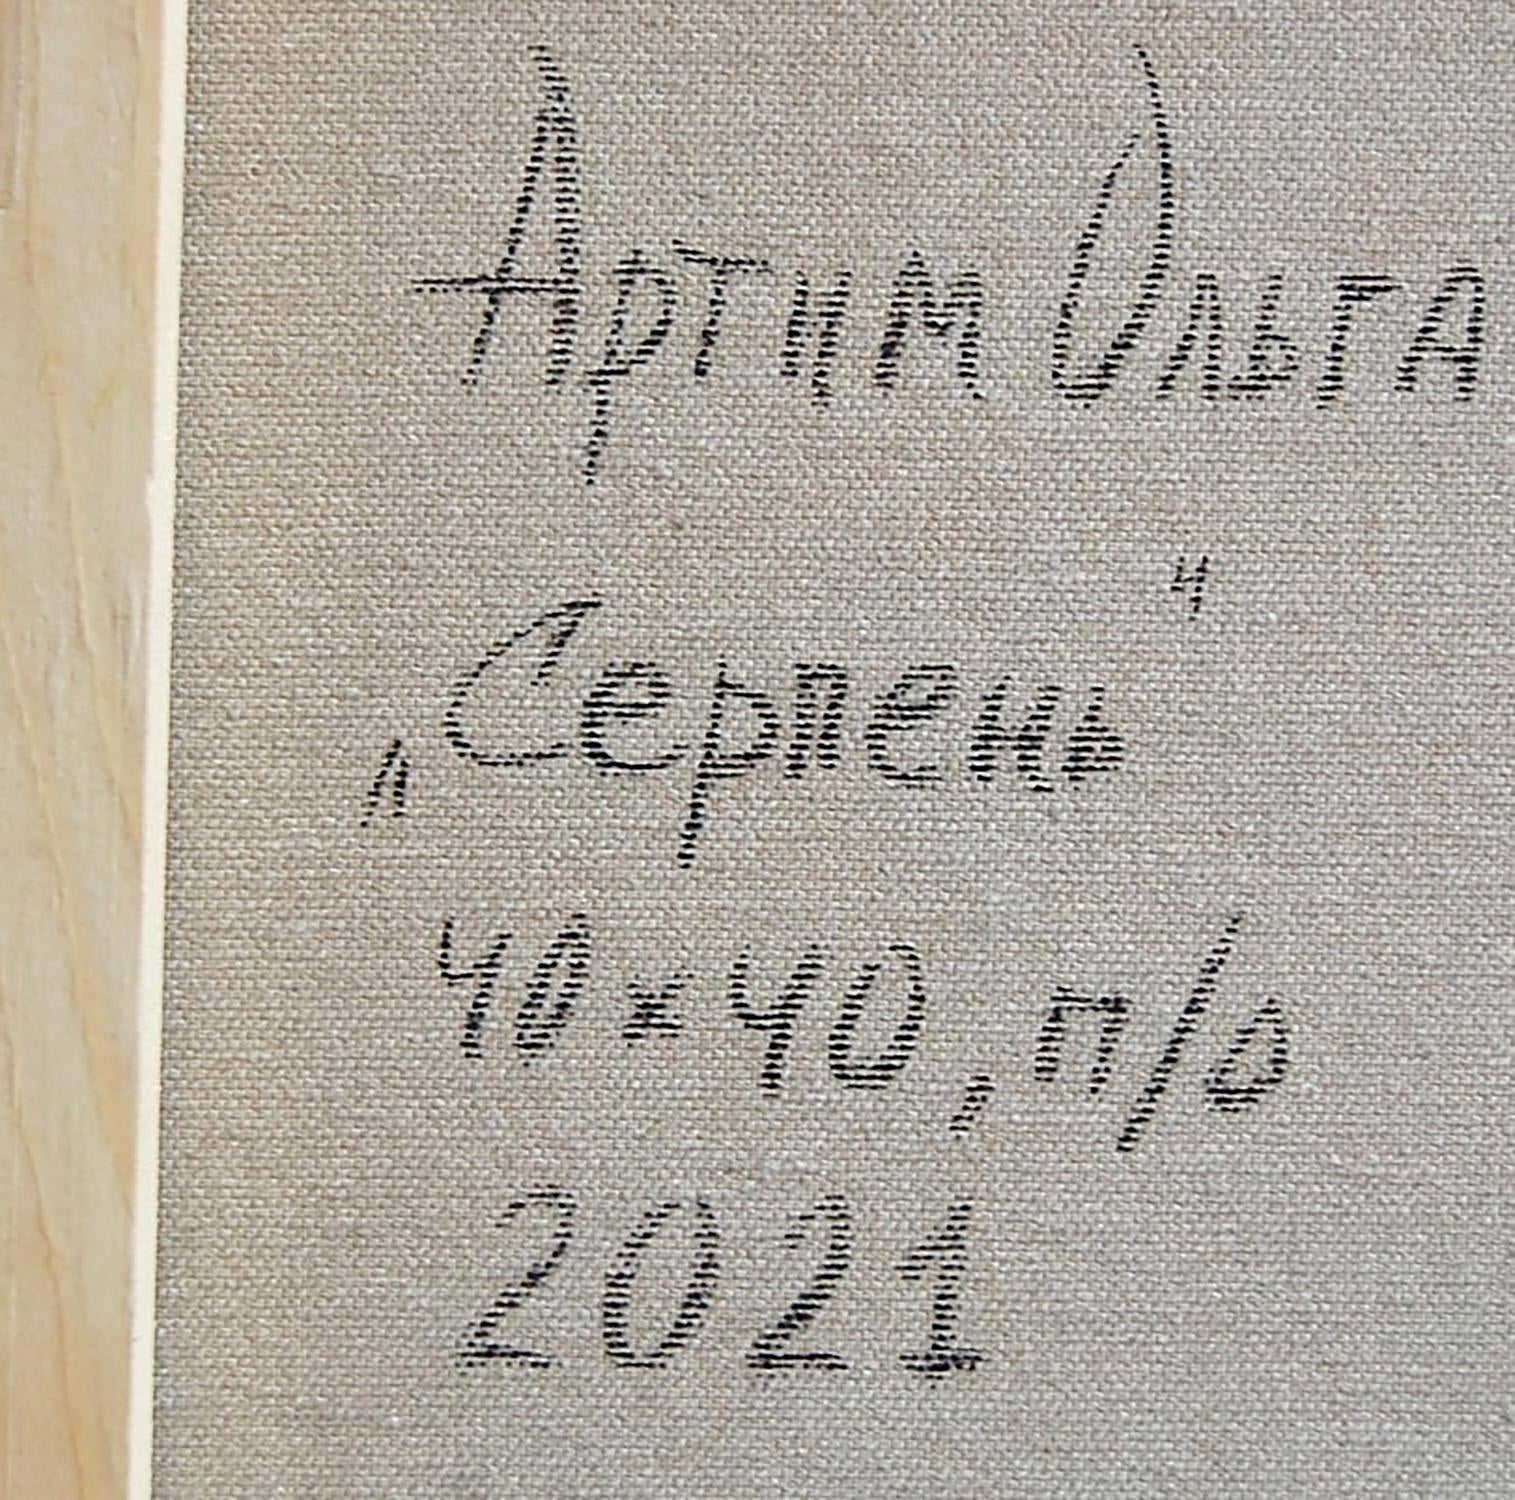 Артим Ольга
„Серпень"
40×40, п/о
2021